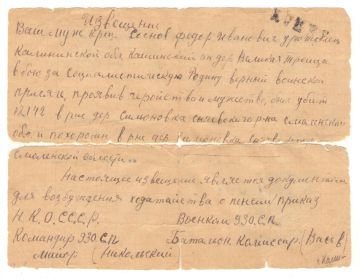 Извещение
Ваш муж кр-ц Соснов Федор Иванович уроженец
Калининской обл Кашинский р-н дер Малая Троица
в бою за Социалистическую Родину верный воинской
присяге, проявив геройство и мужество, был убит
12.1.42 в р-не дер Симоновка Смоленской
обл и похоронен в р-не дер Симоновка
Смоленской области
Настоящее извещение является документом
для возбуждения ходатайства о пенсии приказ
Н.К.О. С.С.С.Р.
Военком 930.С.П.
Командир 930.С.П.
Батальон Комиссар (Васев
Майор (Никольский